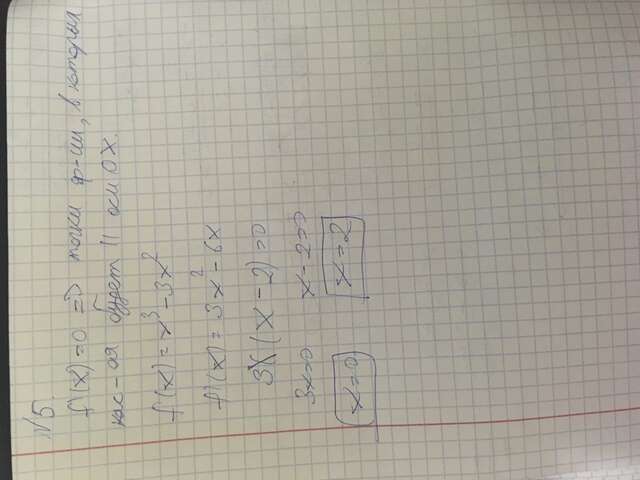 №5.
f'(x)=0 => точки ф-ии, в которых
кас-ая будет || оси OX.
f(x)=x³-3x²
f'(x)=3x²-6x
3x(x-2)=0
3x=0 x-2=0
x=0 x=2